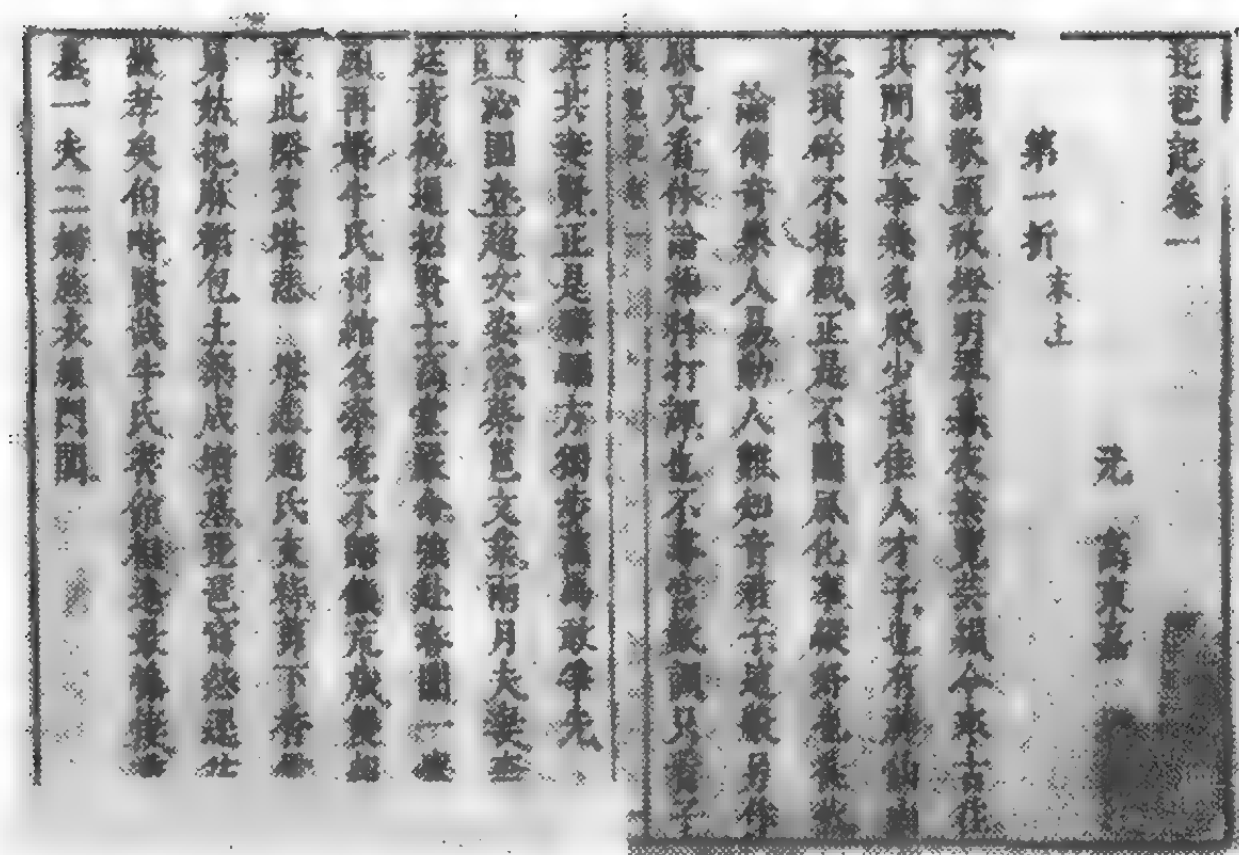 琵琶記卷一
元　高東嘉
第一折末上
水調歌頭秋燈明翠幕夜案覽芸編今來古往
其間故事幾多般少甚佳人才子也有神仙幽
怪瑣碎不堪觀正是不關風化體縱好也徒然
論傳奇樂人易動人難知音君子這般另作
眼兒看休論插科打諢也不尋宮數調只看子
琵琶記卷一
孝共妻賢正是驊騮方獨步萬馬敢爭先
沁園春趙女姿容蔡邕文業兩月夫妻奈
廷黃榜遍招賢士高堂嚴命強赴春闈一鰲
頭再婚牛氏利綰名牽竟不歸饑荒歲雙親
喪此際實堪悲　堪悲趙氏支持剪下香雲
舅姑把麻裙包土築成墳墓琵琶寫怨逕往
畿孝矣伯喈賢哉牛氏書館相逢最慘悽重
墓一夫二婦旌表耀門閭